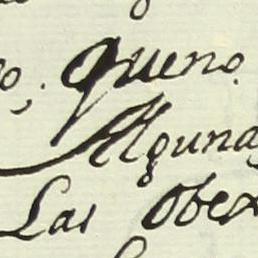 o; Queno.
Alguna
Las Obe